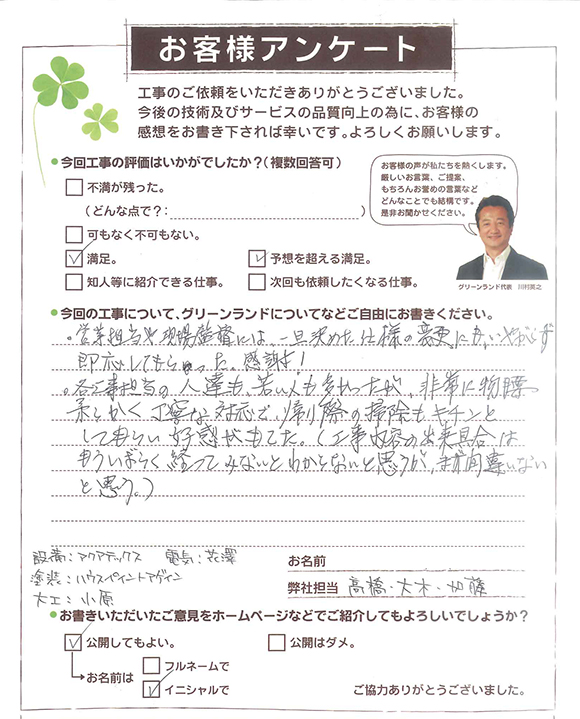 お客様アンケート
工事のご依頼をいただきありがとうございました。
今後の技術及びサービスの品質向上の為に、お客様の
感想をお書き下されば幸いです。よろしくお願いします。
●今回工事の評価はいかがでしたか?(複数回答可)
不満が残った。
(どんな点で?: )
可もなく不可もない。
満足。
予想を超える満足。
知人等に紹介できる仕事。
次回も依頼したくなる仕事。
お客様の声が私たちを熱くします。
厳しいお言葉、ご提案、
もちろんお誉めの言葉など
どんなことでも結構です。
是非お聞かせください。
グリーンランド代表 川村英之
●今回の工事について、グリーンランドについてなどご自由にお書きください。
。営業担当や現場監督には、一旦決めた仕様の変更にもいやがらず
即応してもらった。感謝す!
。各工事担当の人達も、若い人も多かったが、非常に物腰
柔らかく丁寧な対応で、帰り際の掃除もキチンと
してもらい好感がもてた。(工事内容の出来具合は
もういばらく経ってみないとわからないと思うが、まず間違いない
と思う。)
設備:アクアテックス 電気:花澤
塗装:ハウスペイントアゲイン
大工:小原
お名前
弊社担当 高橋・大木・加藤
●お書きいただいたご意見をホームページなどでご紹介してもよろしいでしょうか?
公開してもよい。
公開はダメ。
お名前は
フルネームで
イニシャルで
ご協力ありがとうございました。